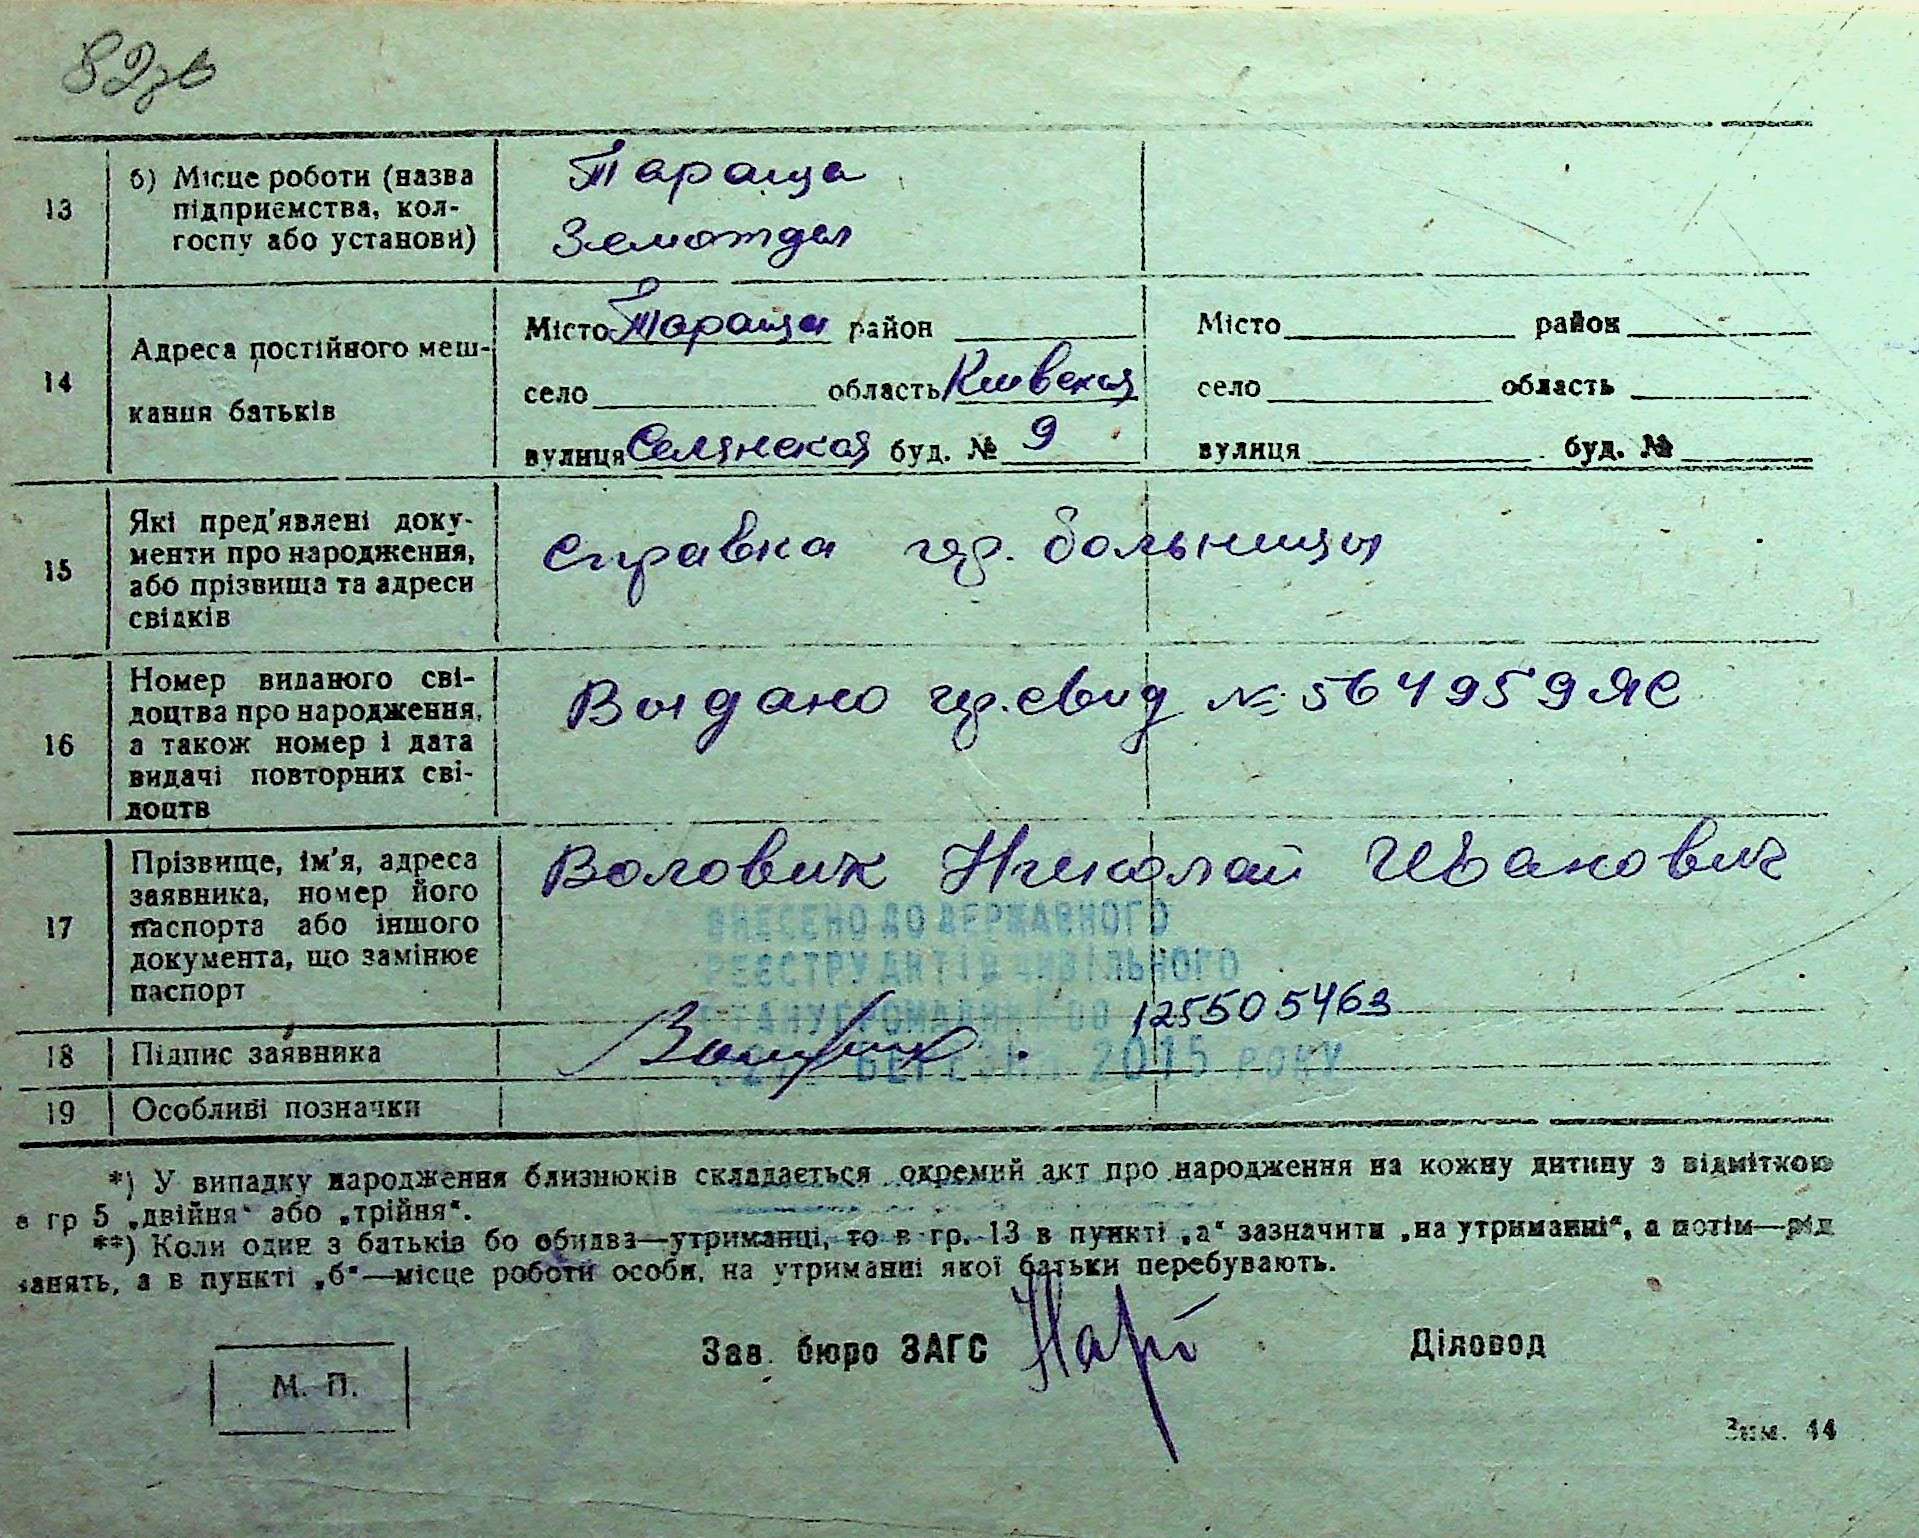 82зв
13
б) Місце роботи (назва
підприємства, кол-
госпу або установи)
Тараща
Земотдел
14
Адреса постійного меш-
кання батьків
Місто Тараща район
село область Киевская
вулиця Селянская буд. № 9
Місто район
село область
вулиця буд. №
15
Які пред'явлені доку-
менти про народження,
або прізвища та адреси
свідків
справка гр. больницы
16
Номер виданого сві-
доцтва про народження,
а також номер і дата
видачі повторних сві-
доцтв
Выдано гр. свид № 564959 ЯС
17
Прізвище, ім'я, адреса
заявника, номер його
паспорта або іншого
документа, що замінює
паспорт
Воловик Николай Иванович
ВНЕСЕНО ДО ДЕРЖАВНОГО
РЕЄСТРУ АКТІВ ЦИВІЛЬНОГО
СТАНУ ГРОМАДЯН 00 125505463
БЕРЕЗНЯ 2015 РОКУ
18
Підпис заявника
19
Особливі позначки
*) У випадку народження близнюків складається окремий акт про народження на кожну дитину з відміткою
в гр 5 „двійня“ або „трійня“.
**) Коли один з батьків бо обидва—утриманці, то в гр. 13 в пункті „а“ зазначити „на утриманні“, а потім—рід
занять, а в пункті „б“—місце роботи особи, на утриманні якої батьки перебувають.
Зав. бюро ЗАГС
Діловод
М. П.
Зам. 44